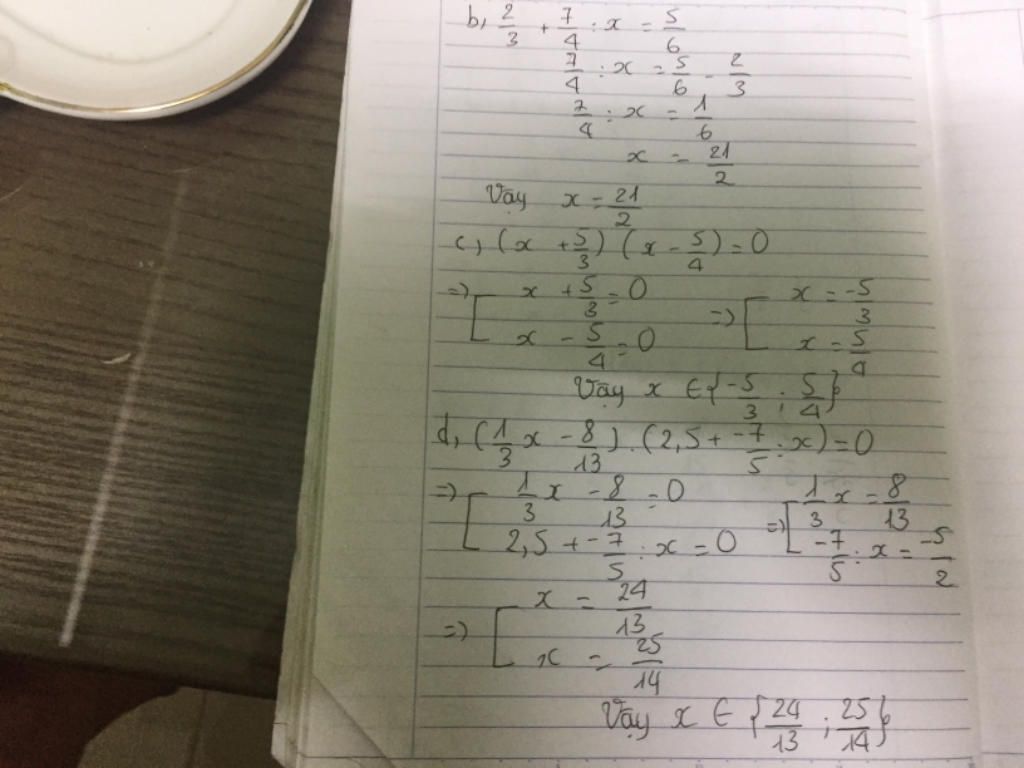 b, 2/3 + 7/4 : x = 5/6
7/4 : x = 5/6 - 2/3
7/4 : x = 1/6
x = 21/2
Vậy x = 21/2
c, (x + 5/3) (x - 5/4) = 0
=> [ x + 5/3 = 0 => [ x = -5/3
x - 5/4 = 0 x = 5/4
Vậy x ∈ {-5/3 ; 5/4}
d, (1/3 x - 8/13) . (2,5 + -7/5 : x) = 0
=> [ 1/3 x - 8/13 = 0 => [ 1/3 x = 8/13
2,5 + -7/5 : x = 0 -7/5 : x = -5/2
=> [ x = 24/13
x = 25/14
Vậy x ∈ {24/13 ; 25/14}